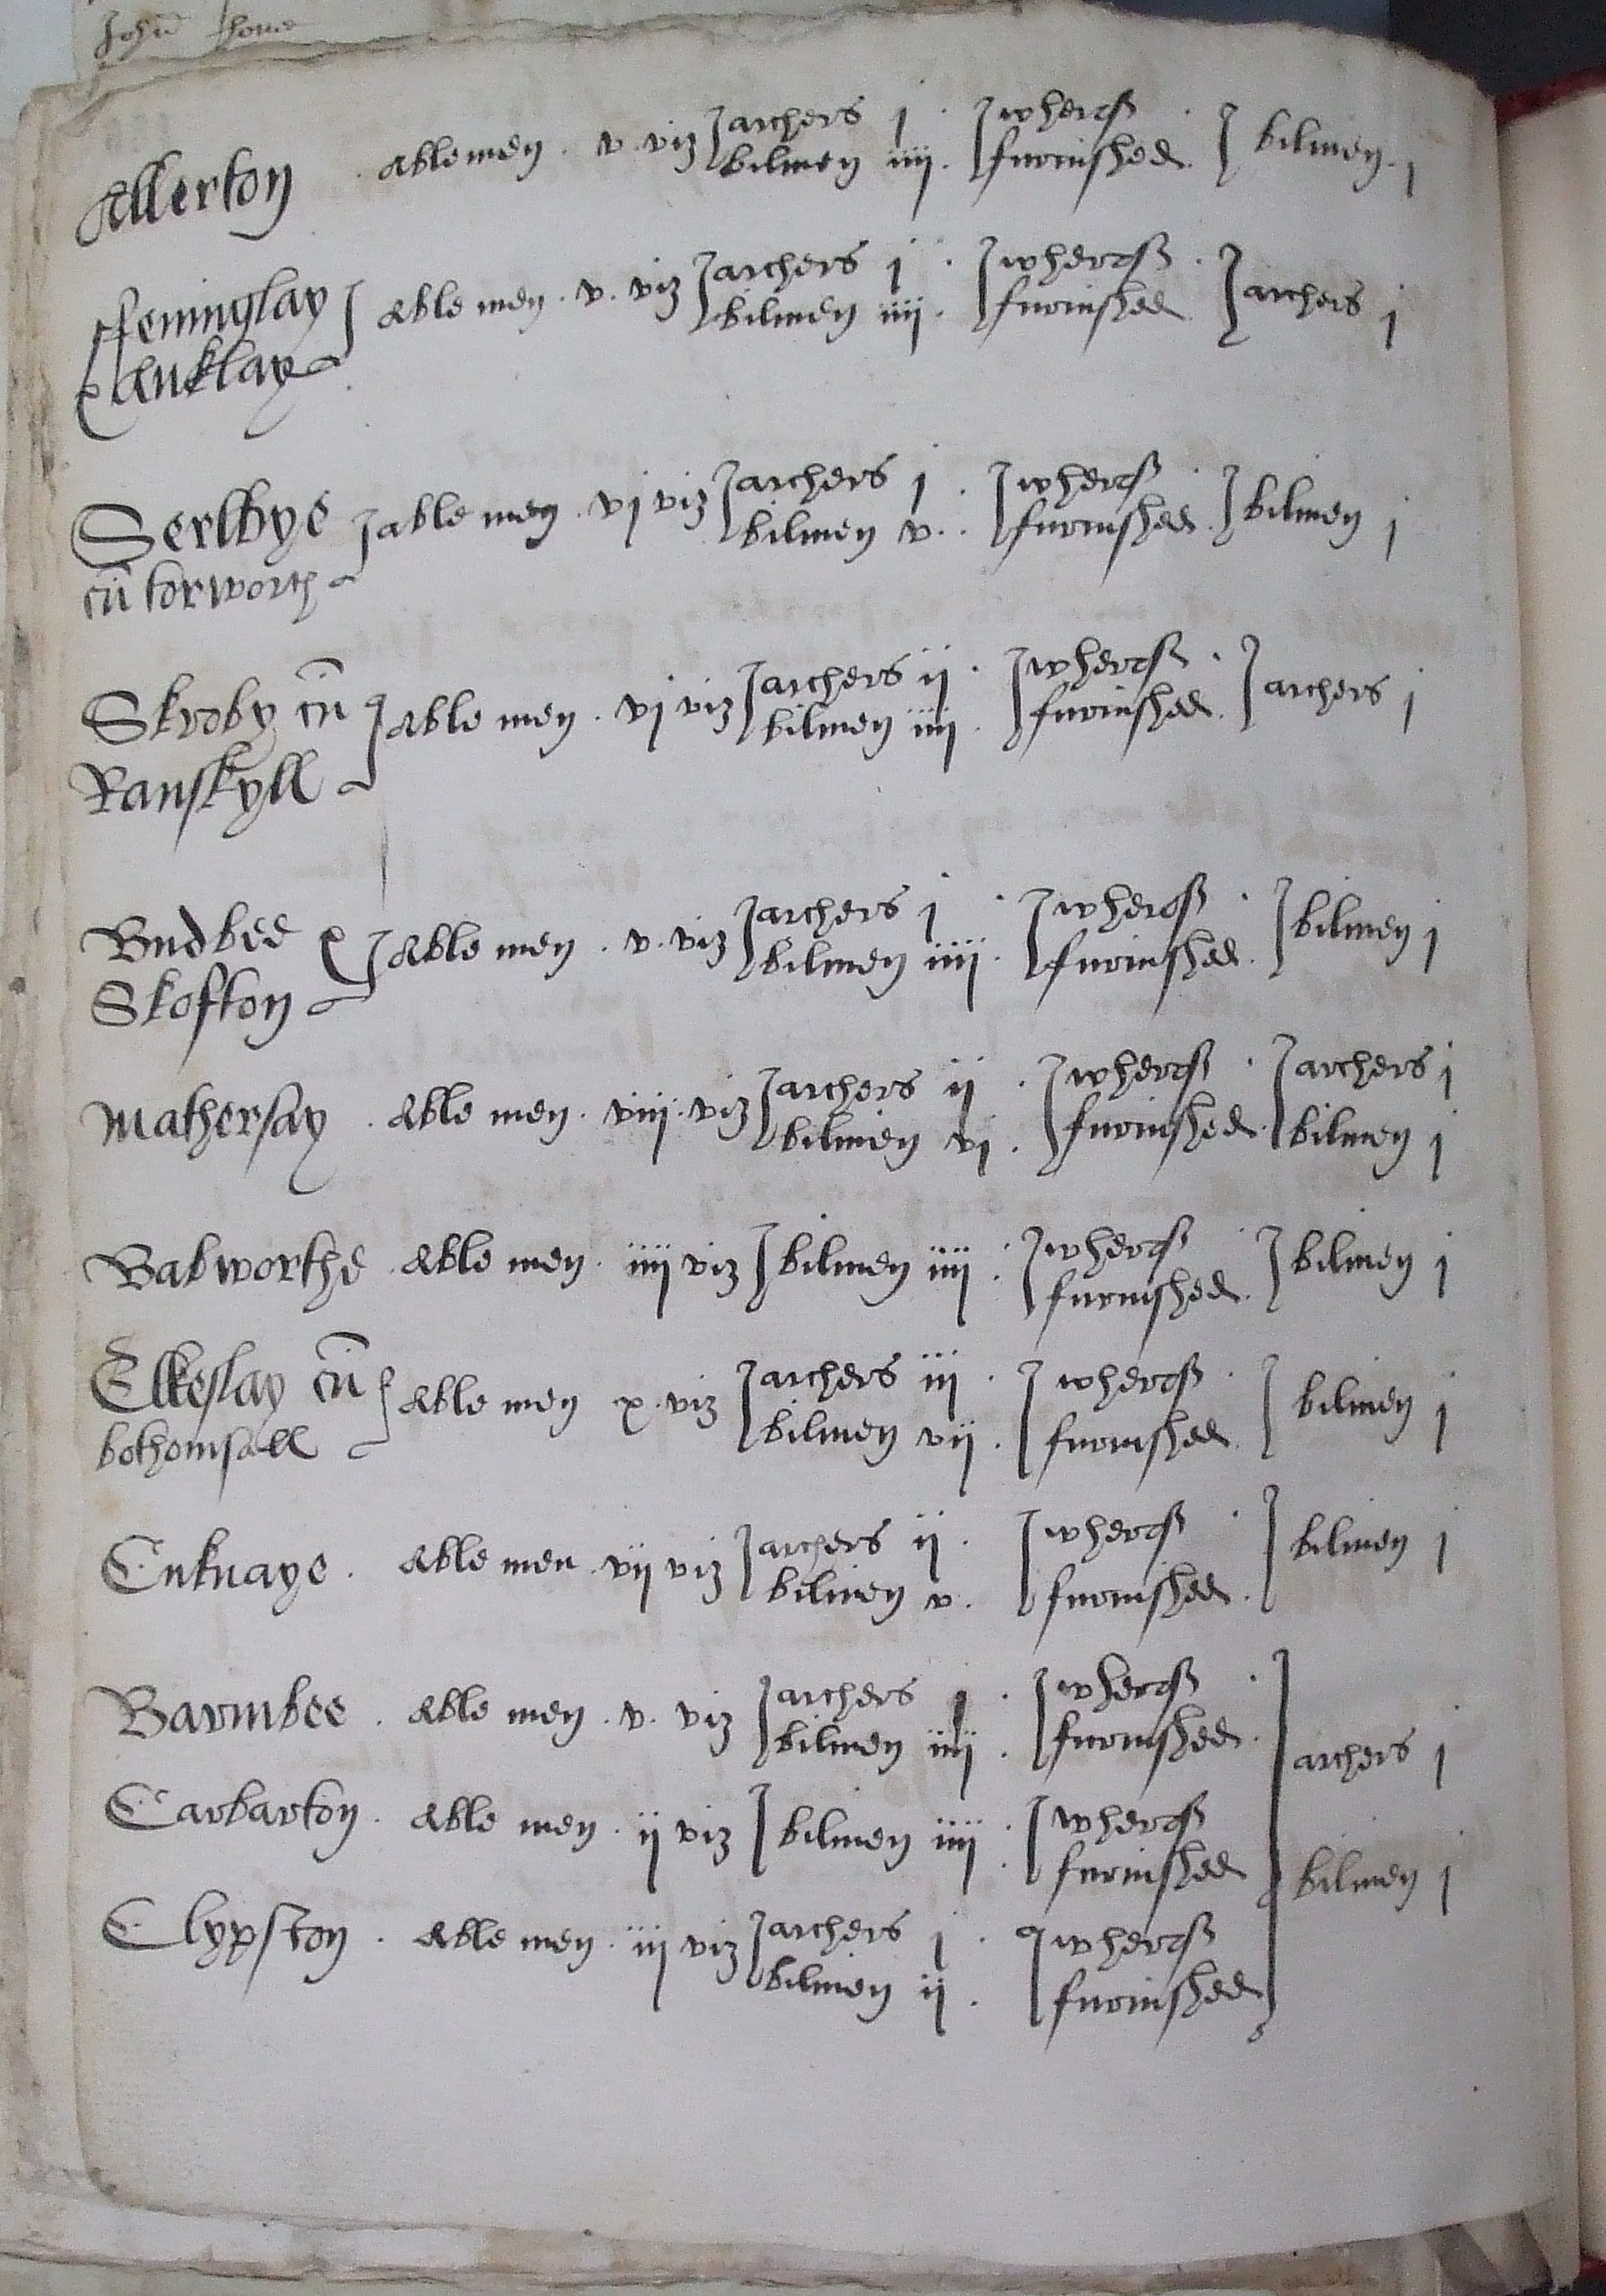 John
Allerton . Able men . v . viz archers j . wherof bilmen . j
bilmen iiij . furnished .
ffeninglay Able men . v . viz archers j . wherof archers j
& Auklay bilmen iiij . furnished
Serlbye able men . vj viz archers j . wherof bilmen j
cū torworth bilmen v . . furnished .
Skroby cū Able men . vj viz archers ij . wherof archers j
Ranskyll bilmen iiij . furnished .
Budbee & Able men . v . viz archers j . wherof bilmen j
Skofton bilmen iiij . furnished .
Mathersay . Able men . viij . viz archers ij . wherof archers j
bilmen vj . furnished . bilmen j
Babworthe . Able men . iiij viz bilmen iiij . wherof bilmen j
furnished .
Elkeslay cū Able men x . viz archers iij . wherof bilmen j
bothomsall bilmen vij . furnished .
Cuknaye . Able men . vij viz archers ij . wherof bilmen j
bilmen v . furnished .
Barmbee . Able men . v . viz archers j . wherof
bilmen iiij . furnished . archers j
Carbarton . Able men . ij viz bilmen iiij . wherof
furnished bilmen j
Clypston . Able men . iij viz archers j . wherof
bilmen ij . furnished